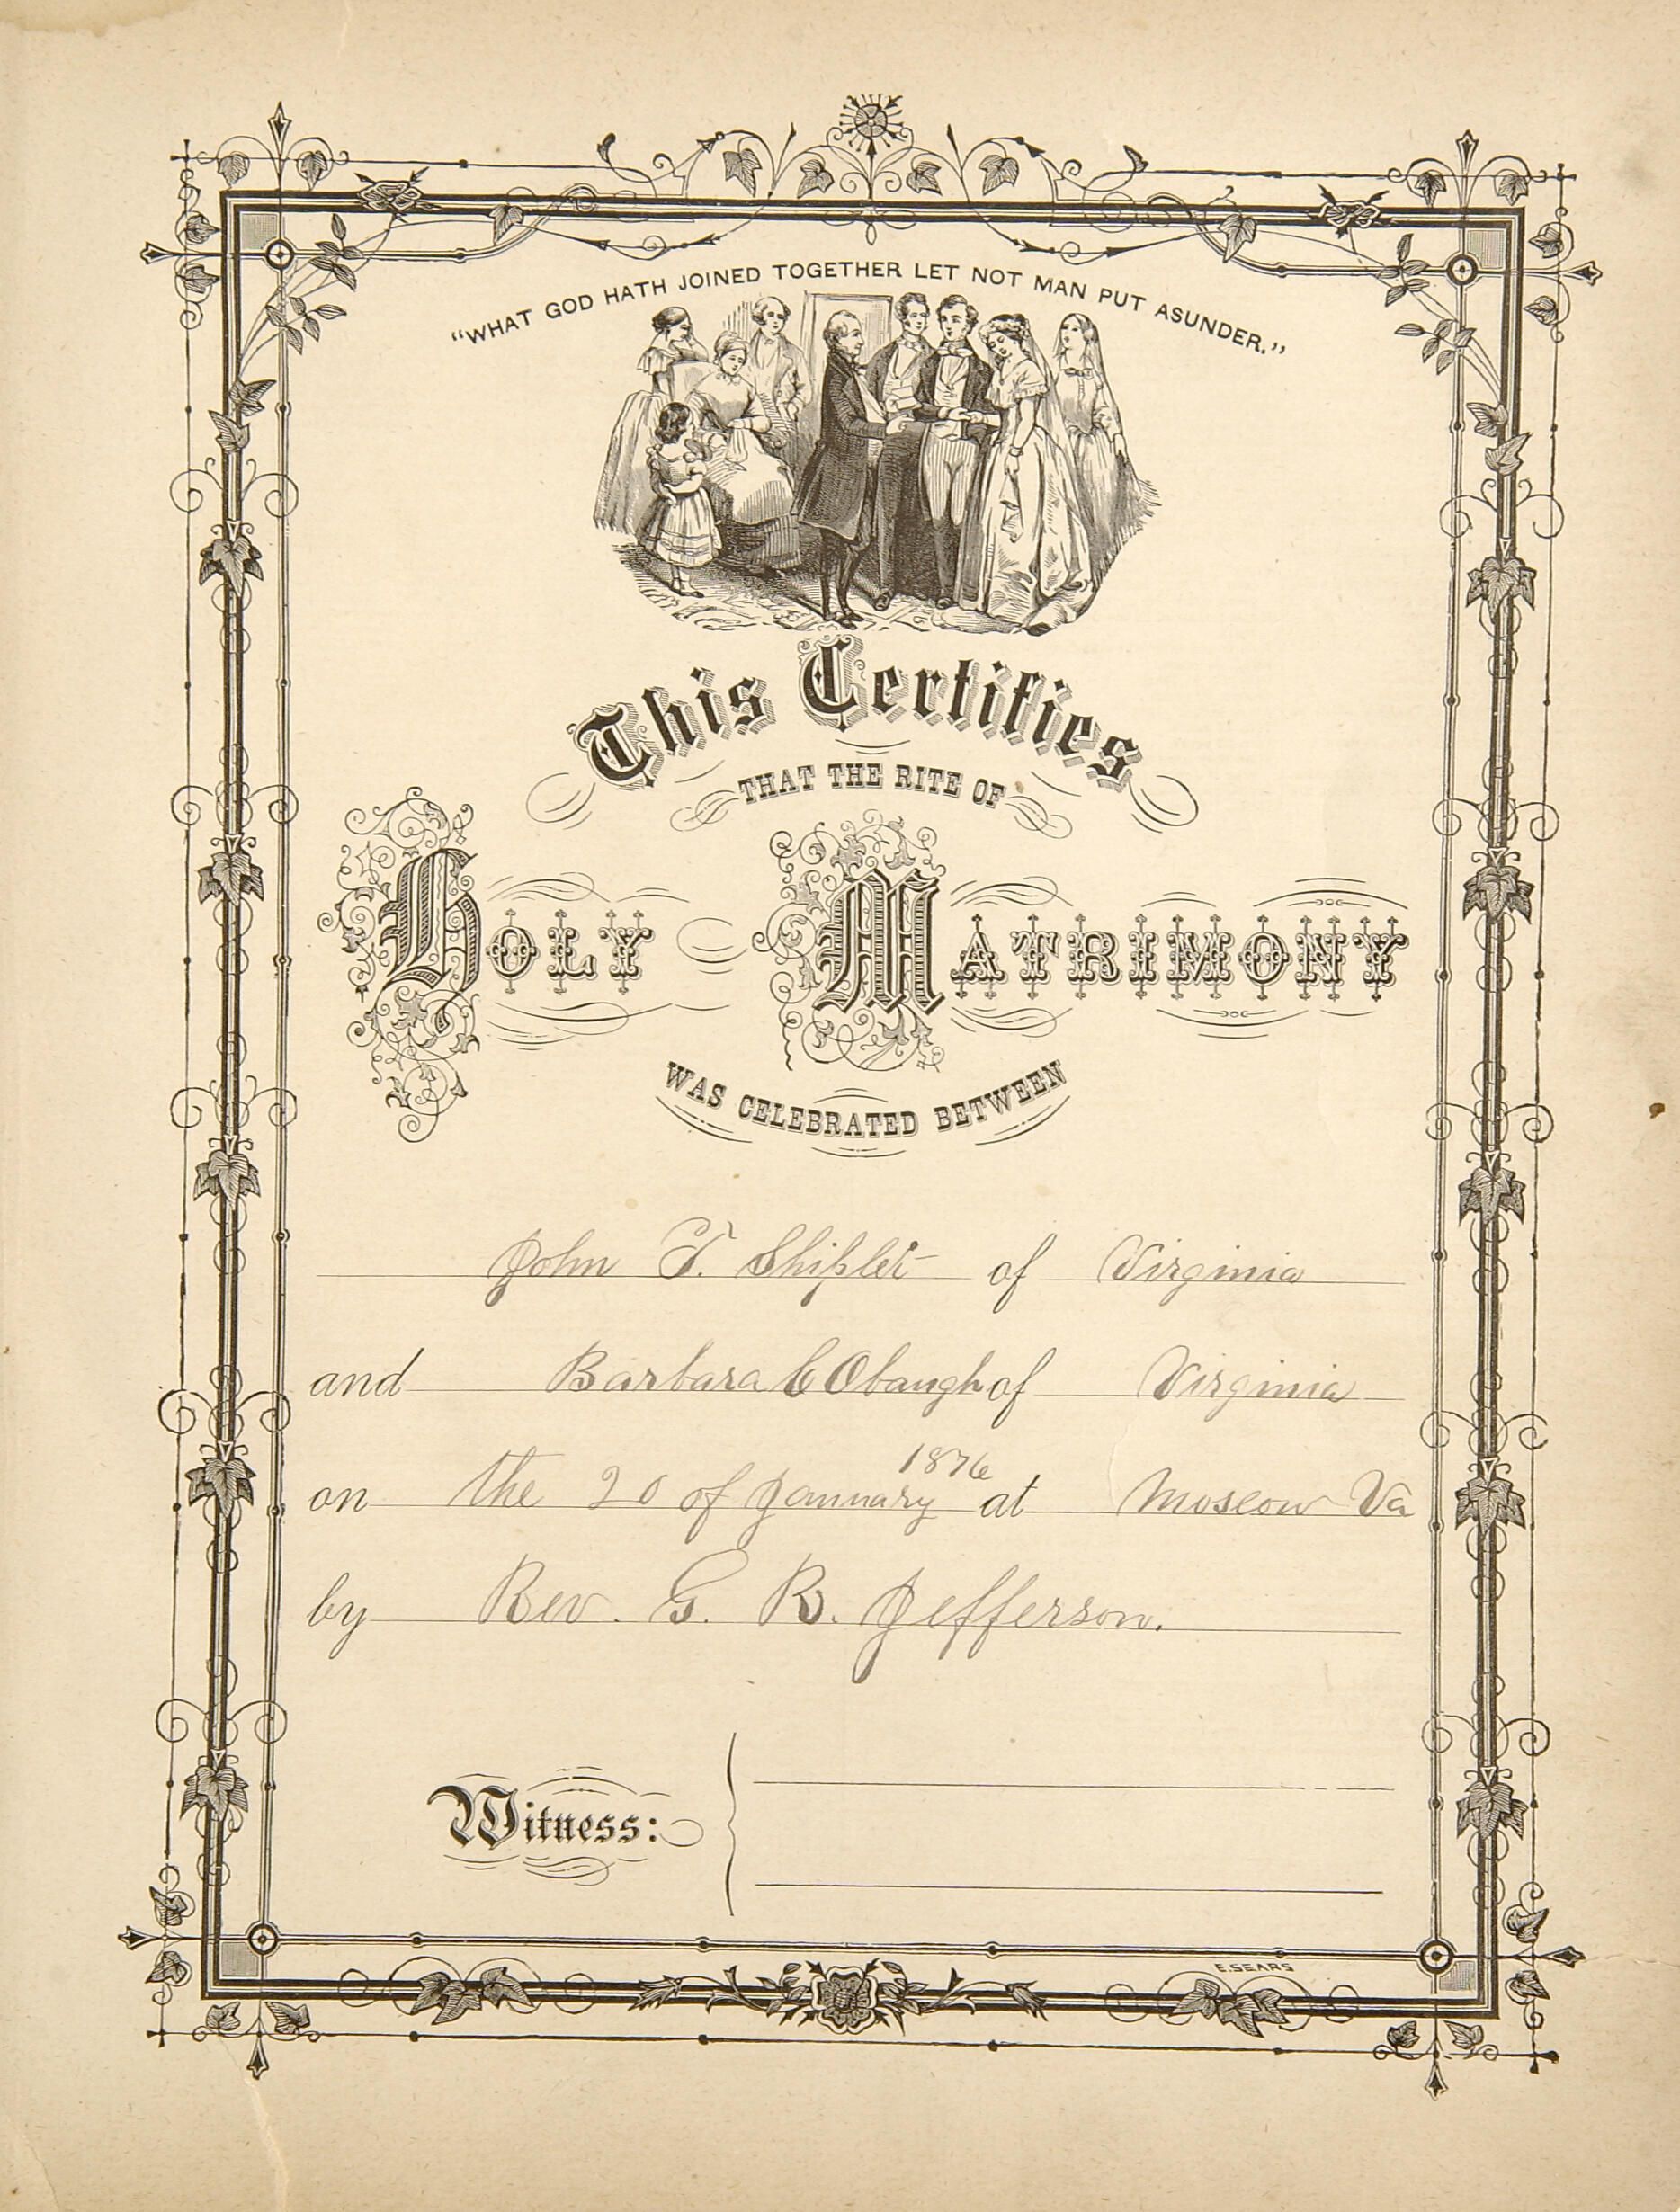 “WHAT GOD HATH JOINED TOGETHER LET NOT MAN PUT ASUNDER.”
This Certifies
THAT THE RITE OF
HOLY MATRIMONY
WAS CELEBRATED BETWEEN
John F. Shiplet of Virginia
and Barbara C Obaugh of Virginia
1876
on the 20 of January at Moscow Va
by Rev. G. R. Jefferson.
Witness:
E.SEARS